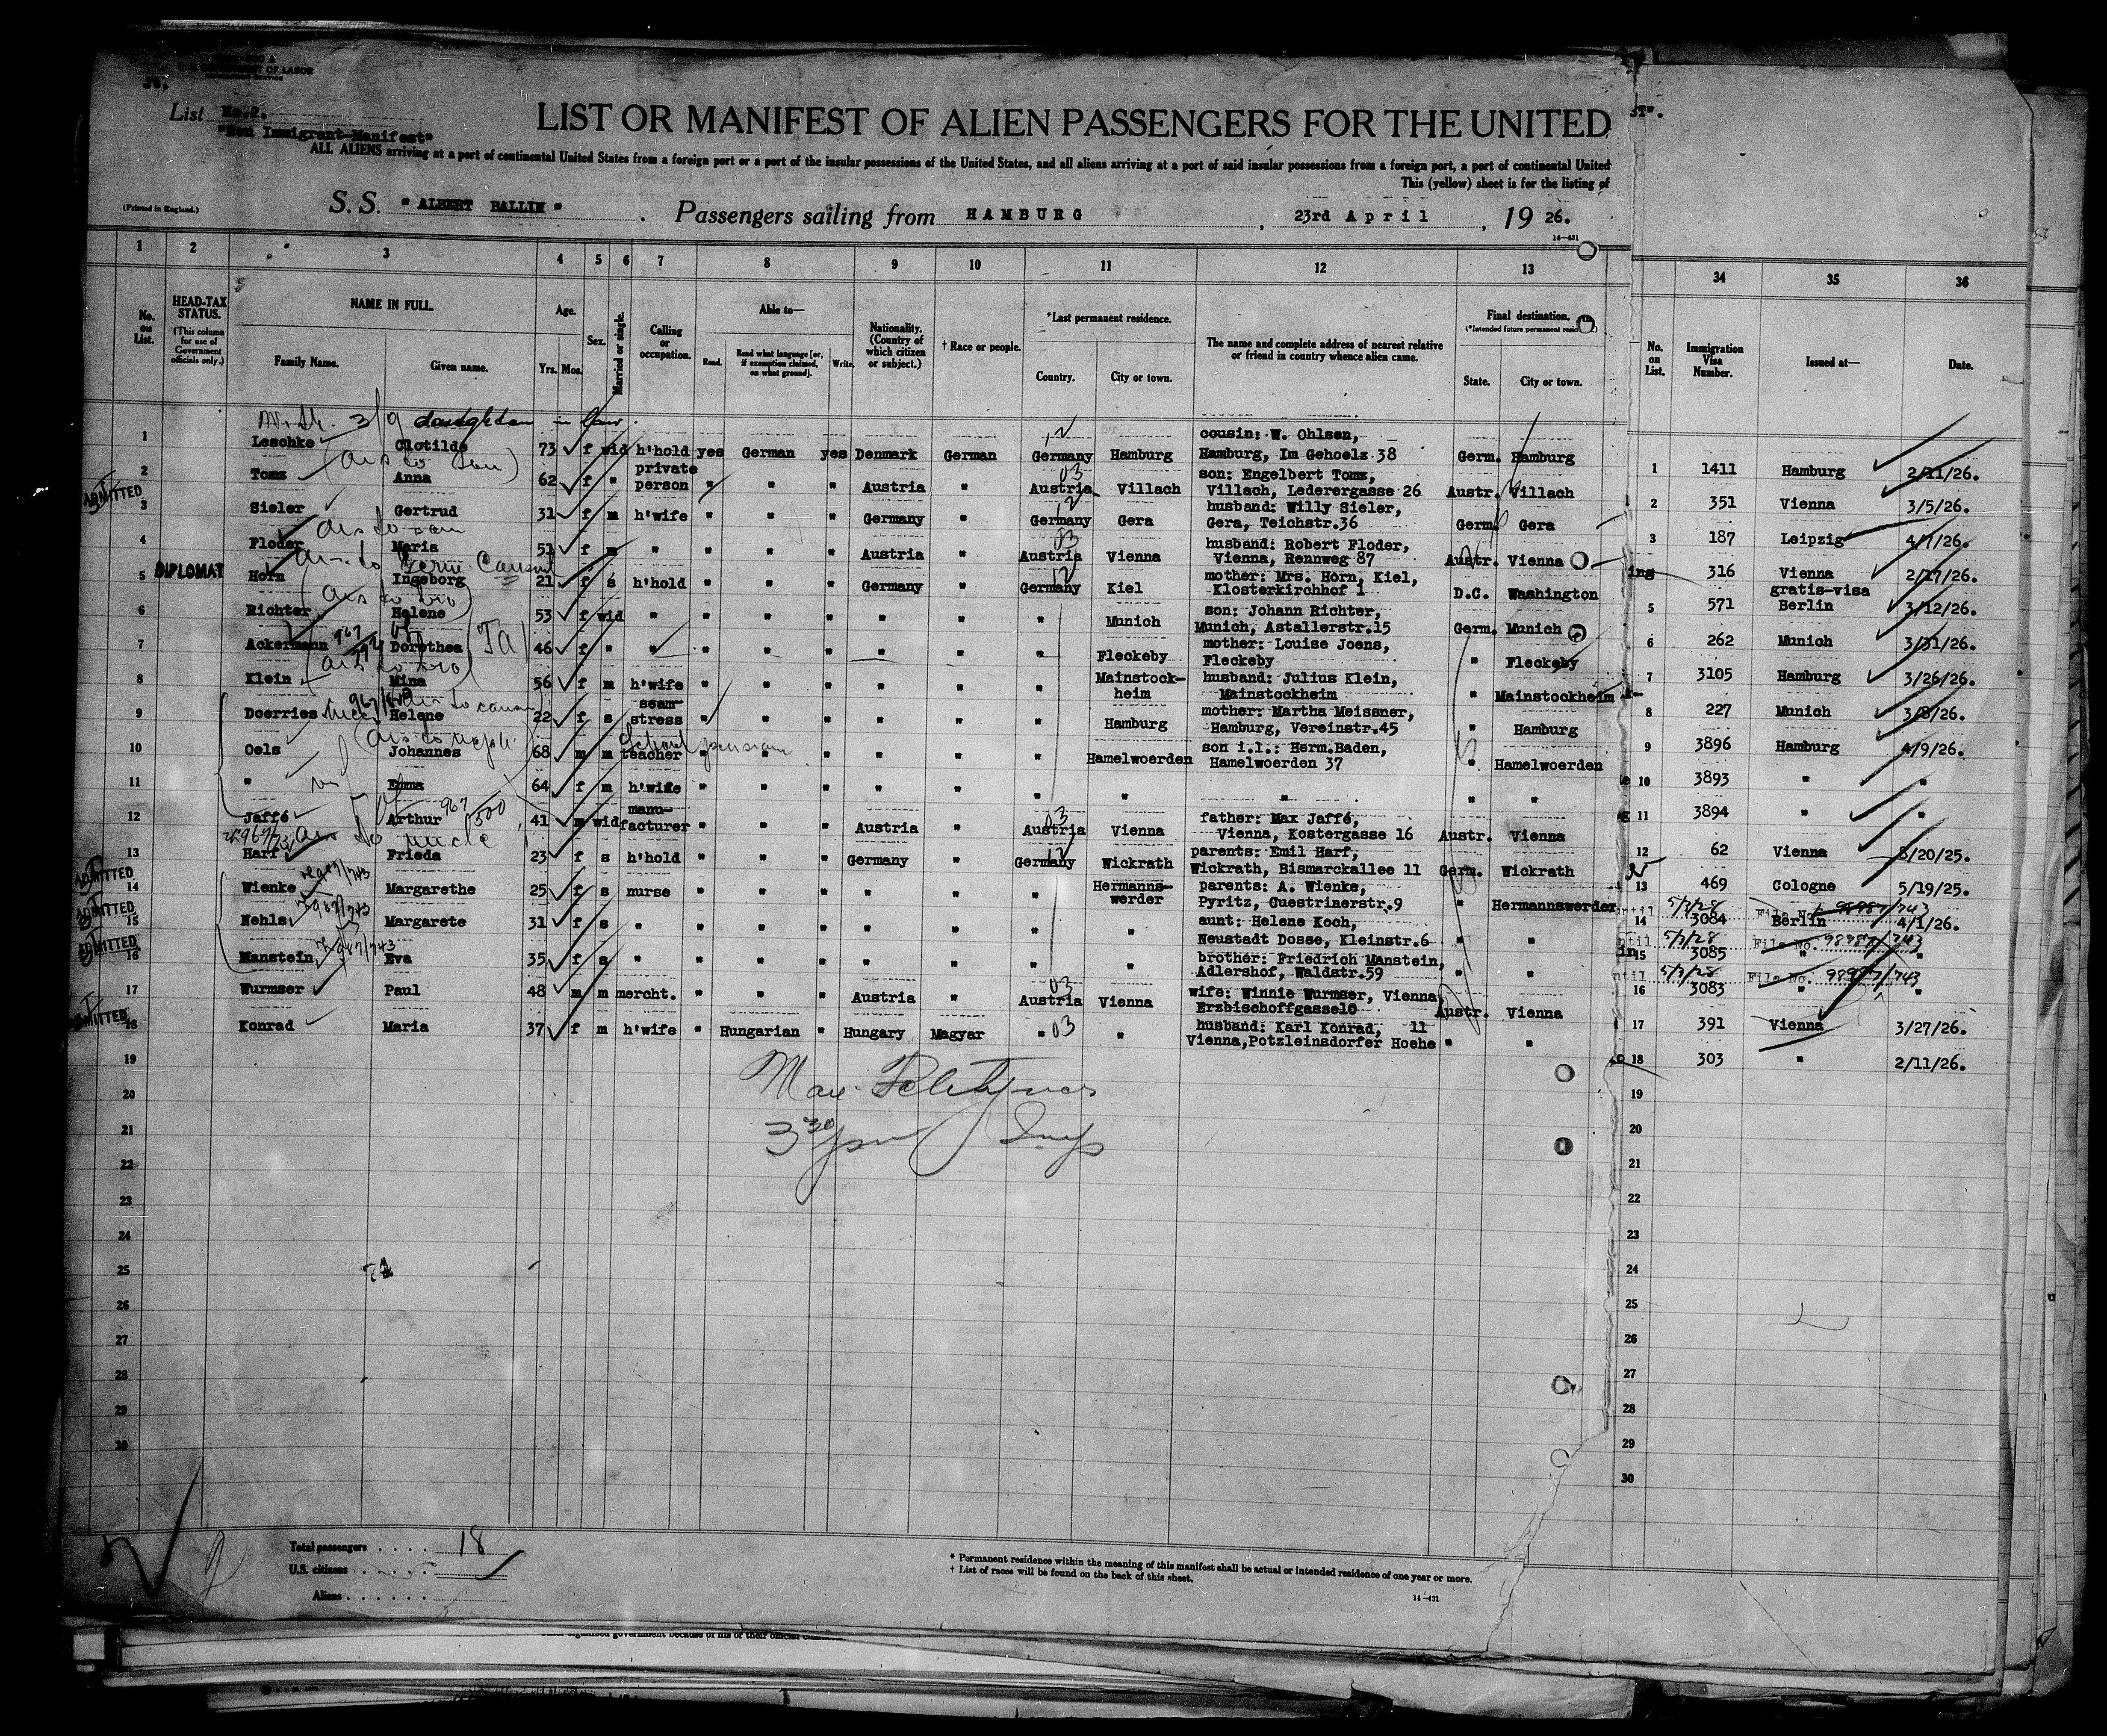 OF LABOR
List No.2.
"Non Immigrant Manifest"
LIST OR MANIFEST OF ALIEN PASSENGERS FOR THE UNITED
ALL ALIENS arriving at a port of continental United States from a foreign port or a port of the insular possessions of the United States, and all aliens arriving at a port of said insular possessions from a foreign port, a port of continental United
This (yellow) sheet is for the listing of
(Printed in England.)
S. S. "ALBERT BALLIN" Passengers sailing from HAMBURG, 23rd April, 19 26.
14-431
1 2 3 4 5 6 7 8 9 10 11 12 13 34 35 36
No. on List.
HEAD-TAX STATUS.
(This column for use of Government officials only.)
NAME IN FULL.
Family Name. Given name.
Age.
Yrs. Mos.
Sex.
Married or single.
Calling or occupation.
Able to—
Read. Read what language [or, if exemption claimed, on what ground]. Write.
Nationality. (Country of which citizen or subject.)
† Race or people.
*Last permanent residence.
Country. City or town.
The name and complete address of nearest relative or friend in country whence alien came.
Final destination.
(*Intended future permanent
State. City or town.
No. on List.
Immigration Visa Number.
Issued at—
Date.
daughter in law
1 Leschke Clotilde 73 f wid h'hold yes German yes Denmark German Germany Hamburg cousin: W. Ohlsen, Hamburg, Im Gehoelz 38 Germ. Hamburg
2 Tomz Anna 62 f " private person " " " Austria " Austria Villach son: Engelbert Tomz, Villach, Lederergasse 26 Austr. Villach
ADMITTED
3 Sieler Gertrud 31 f m h'wife " " " Germany " Germany Gera husband: Willy Sieler, Gera, Teichstr.36 Germ. Gera
4 Floder Maria 51 f m " " " " Austria " Austria Vienna husband: Robert Floder, Vienna, Rennweg 87 Austr. Vienna
DIPLOMAT
5 Horn Ingeborg 21 f s h'hold " " " Germany " Germany Kiel mother: Mrs. Horn, Kiel, Klosterkirchhof 1 D.C. Washington
6 Richter Helene 53 f wid " " " " " " " Munich son: Johann Richter, Munich, Astallerstr.15 Germ. Munich
7 Ackermann Dorothea 46 f " " " " " " " " Fleckeby mother: Louise Joens, Fleckeby " Fleckeby
8 Klein Mina 56 f m h'wife " " " " " " Mainstockheim husband: Julius Klein, Mainstockheim " Mainstockheim
9 Doerries Helene 22 f s seamstress " " " " " " Hamburg mother: Martha Meissner, Hamburg, Vereinstr.45 " Hamburg
10 Oels Johannes 68 m m teacher " " " " " " Hamelwoerden son i.l.: Herm.Baden, Hamelwoerden 37 " Hamelwoerden
11 " Emma 64 f m h'wife " " " " " " " " " "
12 Jaffé Arthur 41 m wid manufacturer " " " Austria " Austria Vienna father: Max Jaffé, Vienna, Kostergasse 16 Austr. Vienna
13 Harf Frieda 23 f s h'hold " " " Germany " Germany Wickrath parents: Emil Harf, Wickrath, Bismarckallee 11 Germ. Wickrath
ADMITTED
14 Wienke Margarethe 25 f s nurse " " " " " " Hermannswerder parents: A. Wienke, Pyritz, Cuestrinerstr.9 " Hermannswerder
ADMITTED
15 Nehls Margarete 31 f s " " " " " " " " aunt: Helene Koch, Neustadt Dosse, Kleinstr.6 " "
ADMITTED
16 Manstein Eva 35 f s " " " " " " " " brother: Friedrich Manstein, Adlershof, Waldstr.59 " "
17 Wurmser Paul 48 m m mercht. " " " Austria " Austria Vienna wife: Winnie Wurmser, Vienna, Erzbischoffgasse10 Austr. Vienna
ADMITTED
18 Konrad Maria 37 f m h'wife " Hungarian " Hungary Magyar " " husband: Karl Konrad, 11 Vienna,Potzleinsdorfer Hoehe " "
19
20
21
22
23
24
25
26
27
28
29
30
1 1411 Hamburg 2/11/26.
2 351 Vienna 3/5/26.
3 187 Leipzig 4/7/26.
316 Vienna 2/17/26.
gratis-visa
5 571 Berlin 3/12/26.
6 262 Munich 3/31/26.
7 3105 Hamburg 3/26/26.
8 227 Munich 3/8/26.
9 3896 Hamburg 4/9/26.
10 3893 " "
11 3894 " "
12 62 Vienna 8/20/25.
13 469 Cologne 5/19/25.
5/7/28 File No. 98987/743
14 3084 Berlin 4/1/26.
5/7/28 File No. 98987/743
15 3085 " "
5/7/28 File No. 98987/743
16 3083 " "
17 391 Vienna 3/27/26.
18 303 " 2/11/26.
19
20
21
22
23
24
25
26
27
28
29
30
Total passengers . . . . 18
U.S. citizens . . . . .
Aliens . . . . . .
* Permanent residence within the meaning of this manifest shall be actual or intended residence of one year or more.
† List of races will be found on the back of this sheet.
14-431